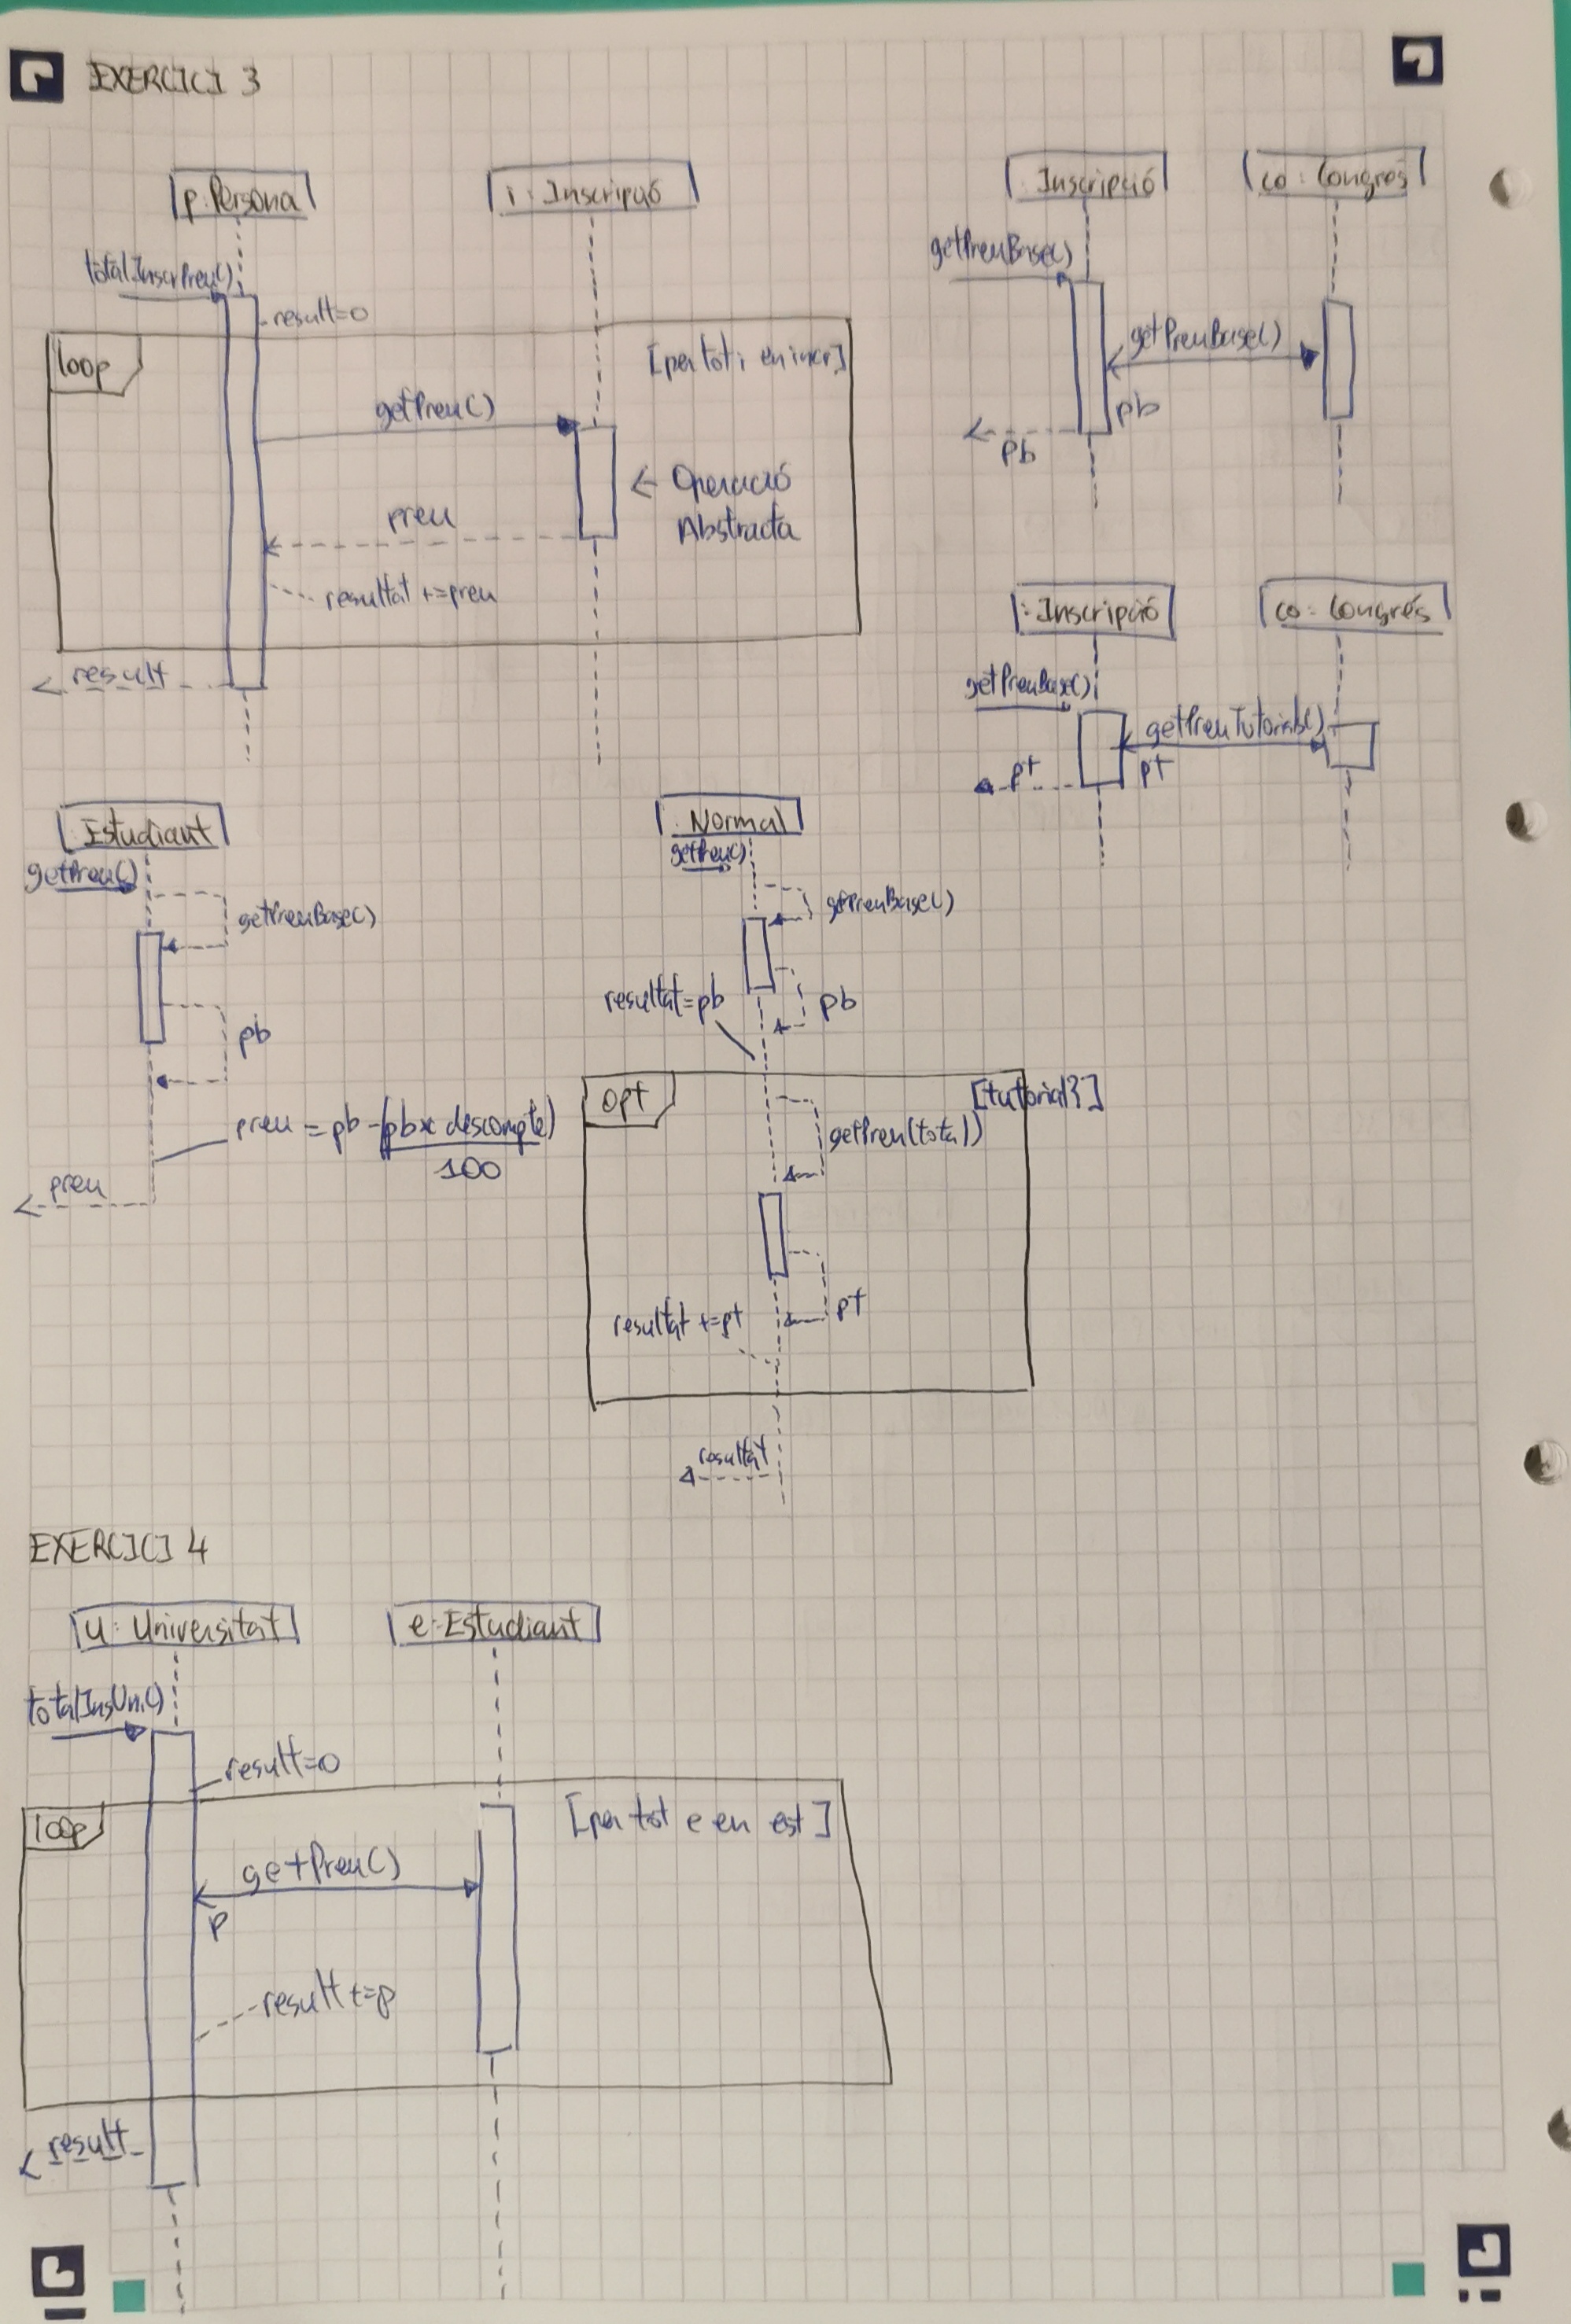 EXERCICI 3
p:Persona
i: Inscripció
totalInscrPreu()
result=0
loop
[per tot i en inscr]
getPreu()
← Operació
Abstracta
preu
resultat +=preu
result
:Inscripció
co: Congrés
getPreuBase()
getPreuBase()
pb
pb
:Inscripció
co: Congrés
getPreuBase()
getPreuTutorials()
pt
pt
:Estudiant
getPreu()
getPreuBase()
pb
preu = pb-(pbx descompte)
100
preu
:Normal
getPreu()
getPreuBase()
resultat=pb
pb
opt
[tutorial?]
getPreu(total)
pt
resultat +=pt
resultat
EXERCICI 4
u: Universitat
e:Estudiant
totalInsUni()
result=0
loop
[per tot e en est]
getPreu()
p
result+=p
result